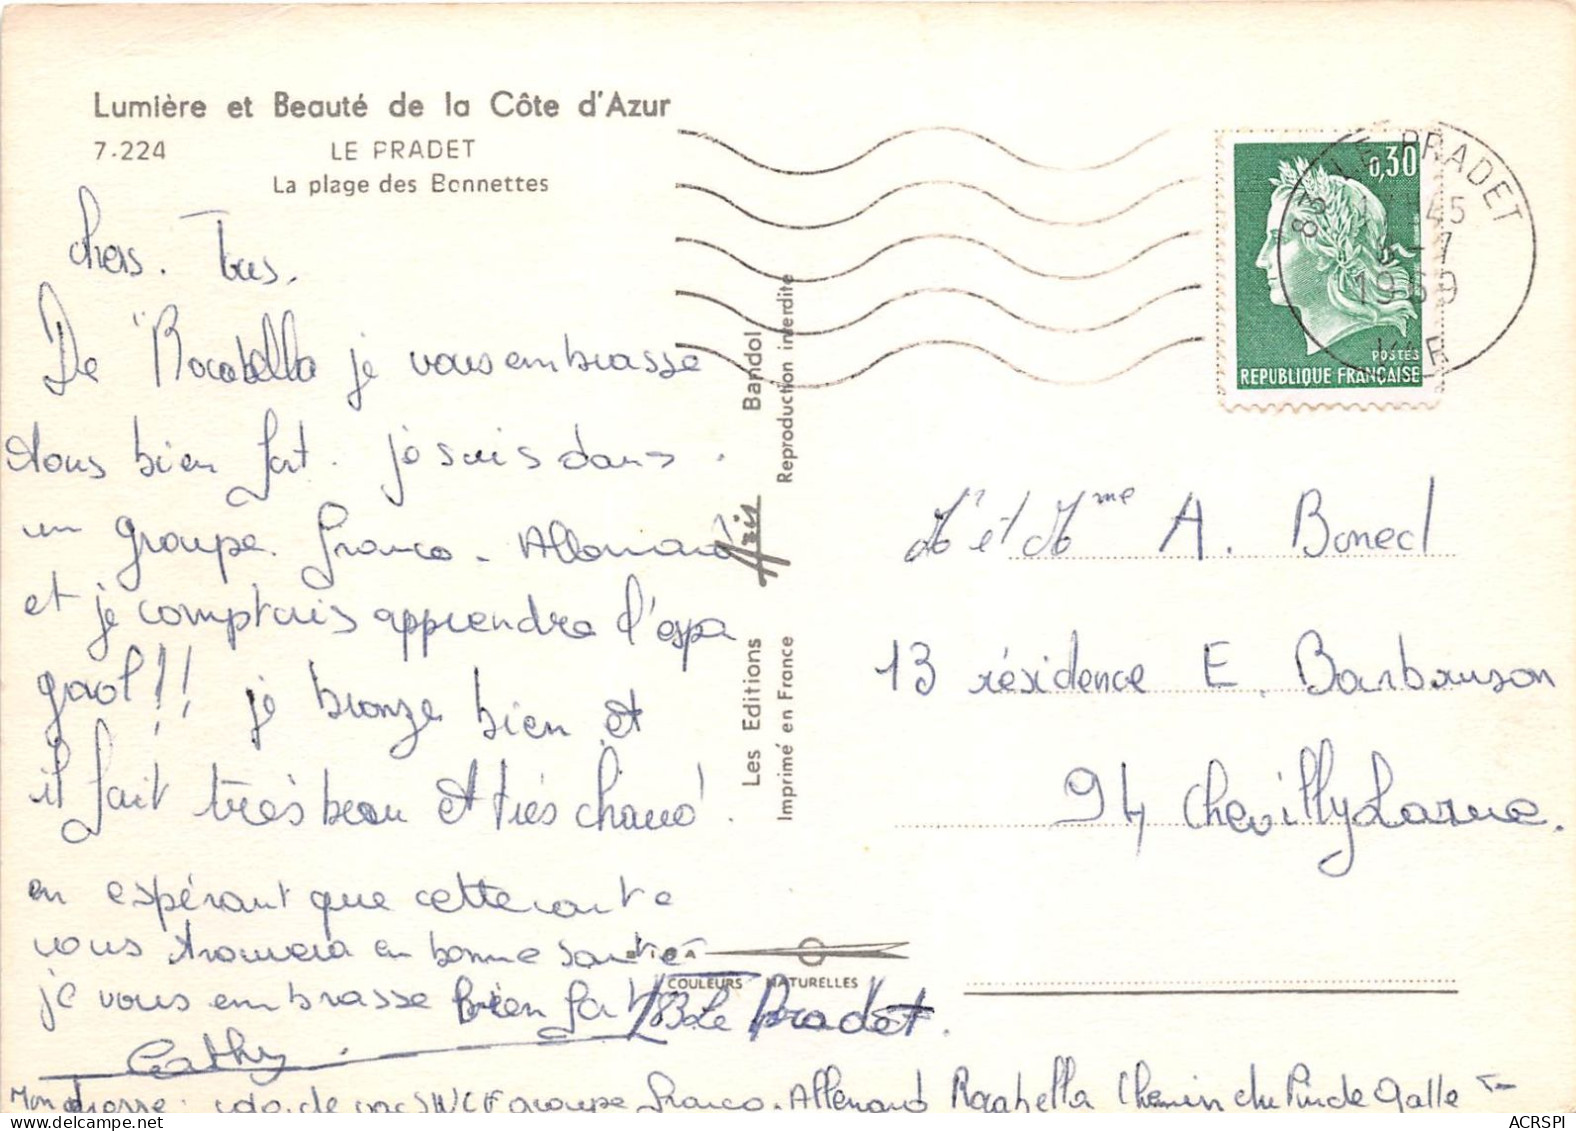 Lumière et Beauté de la Côte d'Azur
7-224 LE PRADET
La plage des Bonnettes
chers. Tous.
De "Rocabella je vous embrasse
tous bien fort. je suis dans
un groupe. franco-Allemand
et je comptais apprendre l'espa
gnol!! je bronze bien et
il fait très beau et très chaud.
en espérant que cette carte
vous trouvera en bonne santé
je vous embrasse bien fort
Cathy
83 Le Pradet.
Mon adresse: colo. de vac SNCF groupe franco-Allemand Rocabella Chemin du Pin de Galle
Les Editions Aris Bandol
Imprimé en France Reproduction interdite
COULEURS NATURELLES
0,30
POSTES
REPUBLIQUE FRANÇAISE
83 LE PRADET
1969
VAR
M et Mme A. Boned
13 résidence E. Barbanson
94 Chevilly Larue.
ACRSPI